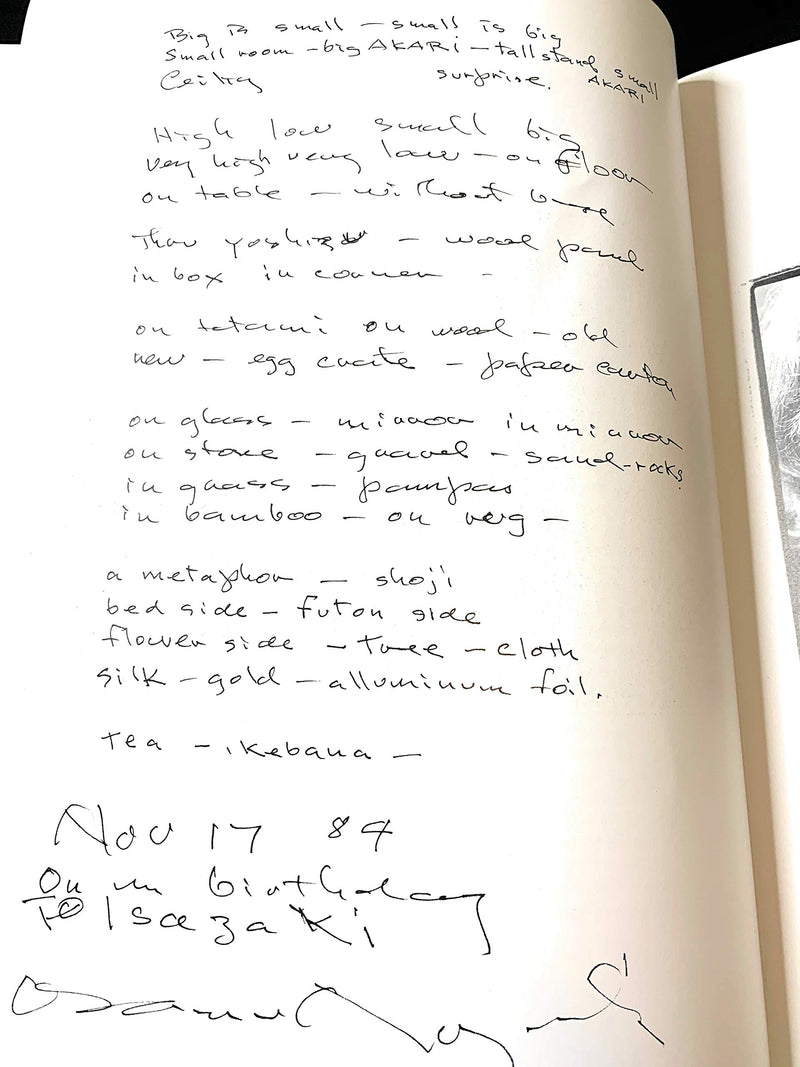 Big is small – small is big
Small room – big AKARI – tall stand small
Ceiling surprise. AKARI
High low small big
very high very low – on floor
on table – without base
– wood panel
in box in corner –
on tatami on wood – old
new – egg crate – paper carton
on glass – mirror in mirror
on stone – gravel – sand – rocks.
in grass – pampas
in bamboo – on –
a metaphor – shoji
bed side – futon side
flower side – tree – cloth
silk – gold – alluminum foil.
Tea – ikebana –
Nov 17 84
On my birthday
To Isozaki
Isamu Noguchi